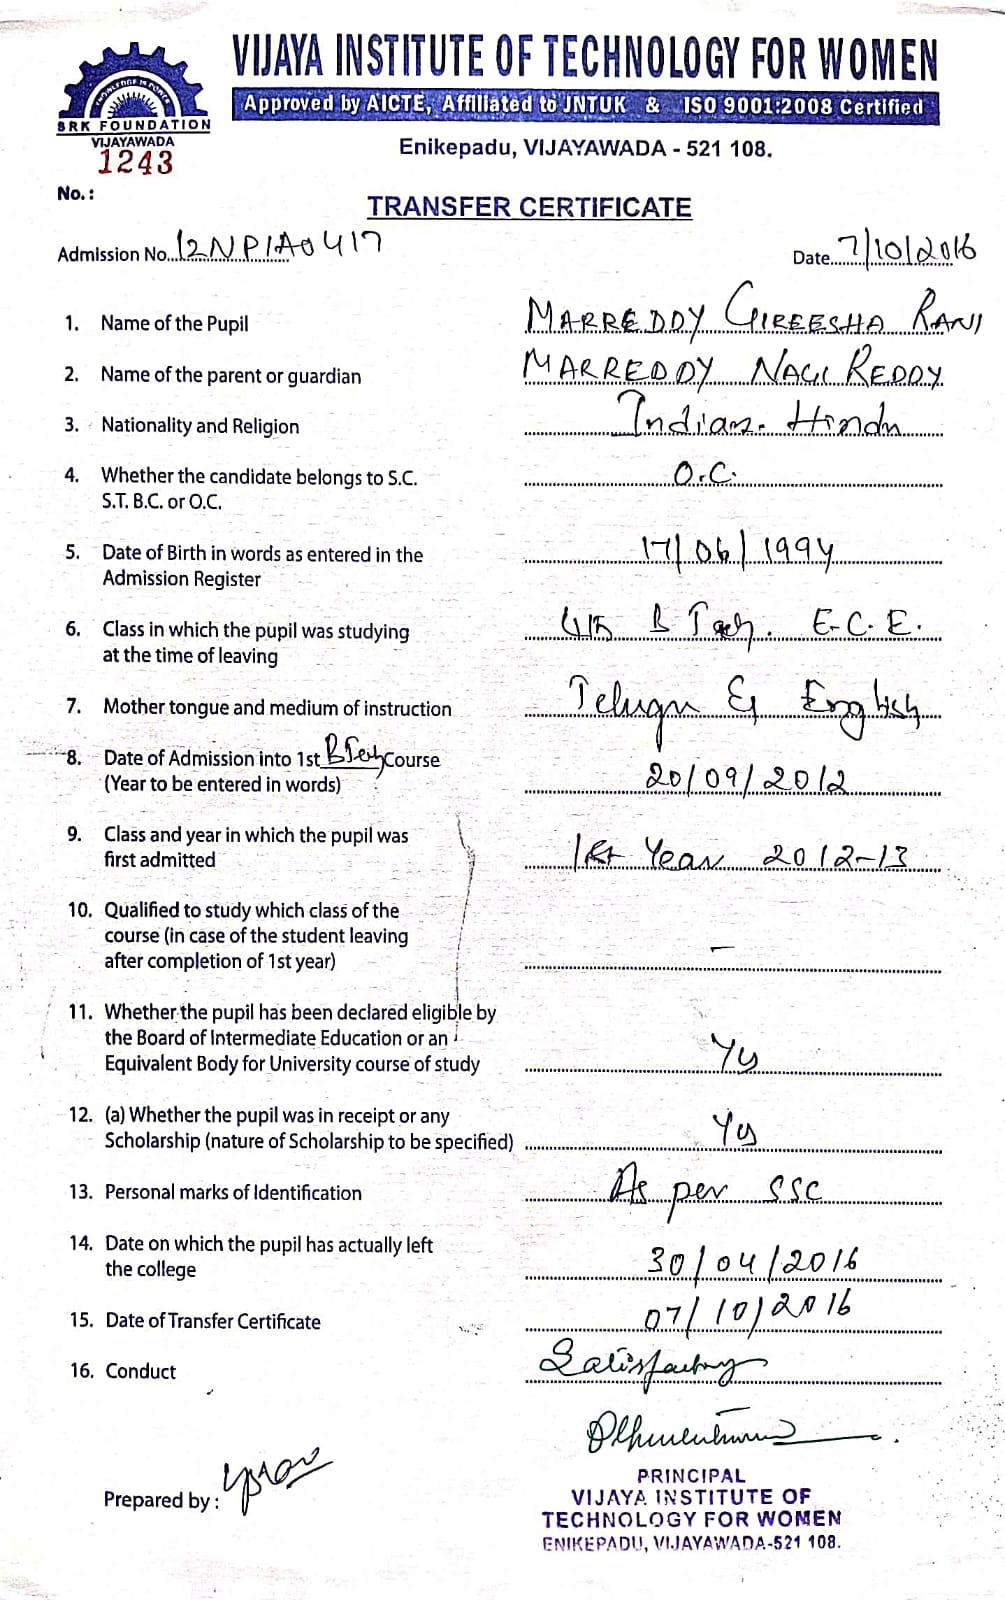 VIJAYA INSTITUTE OF TECHNOLOGY FOR WOMEN
Approved by AICTE, Affiliated to JNTUK & ISO 9001:2008 Certified
KNOWLEDGE IS POWER
SRK FOUNDATION
VIJAYAWADA
Enikepadu, VIJAYAWADA - 521 108.
1243
No. :
TRANSFER CERTIFICATE
Admission No. 12NP1A0417 Date 7/10/2016
1. Name of the Pupil MARREDDY GIREESHA RANI
2. Name of the parent or guardian MARREDDY NAGI REDDY
3. Nationality and Religion Indian. Hindu
4. Whether the candidate belongs to S.C. O.C.
S.T. B.C. or O.C.
5. Date of Birth in words as entered in the 17/06/1994
Admission Register
6. Class in which the pupil was studying B Tech. E.C.E.
at the time of leaving
7. Mother tongue and medium of instruction Telugu & English
8. Date of Admission into 1st BTech Course
(Year to be entered in words) 20/09/2012
9. Class and year in which the pupil was
first admitted 1st Year 2012-13
10. Qualified to study which class of the
course (in case of the student leaving
after completion of 1st year) –
11. Whether the pupil has been declared eligible by
the Board of Intermediate Education or an
Equivalent Body for University course of study Yes
12. (a) Whether the pupil was in receipt or any
Scholarship (nature of Scholarship to be specified) Yes
13. Personal marks of Identification As per SSC
14. Date on which the pupil has actually left
the college 30/04/2016
15. Date of Transfer Certificate 07/10/2016
16. Conduct Satisfactory
Prepared by :
PRINCIPAL
VIJAYA INSTITUTE OF
TECHNOLOGY FOR WOMEN
ENIKEPADU, VIJAYAWADA-521 108.